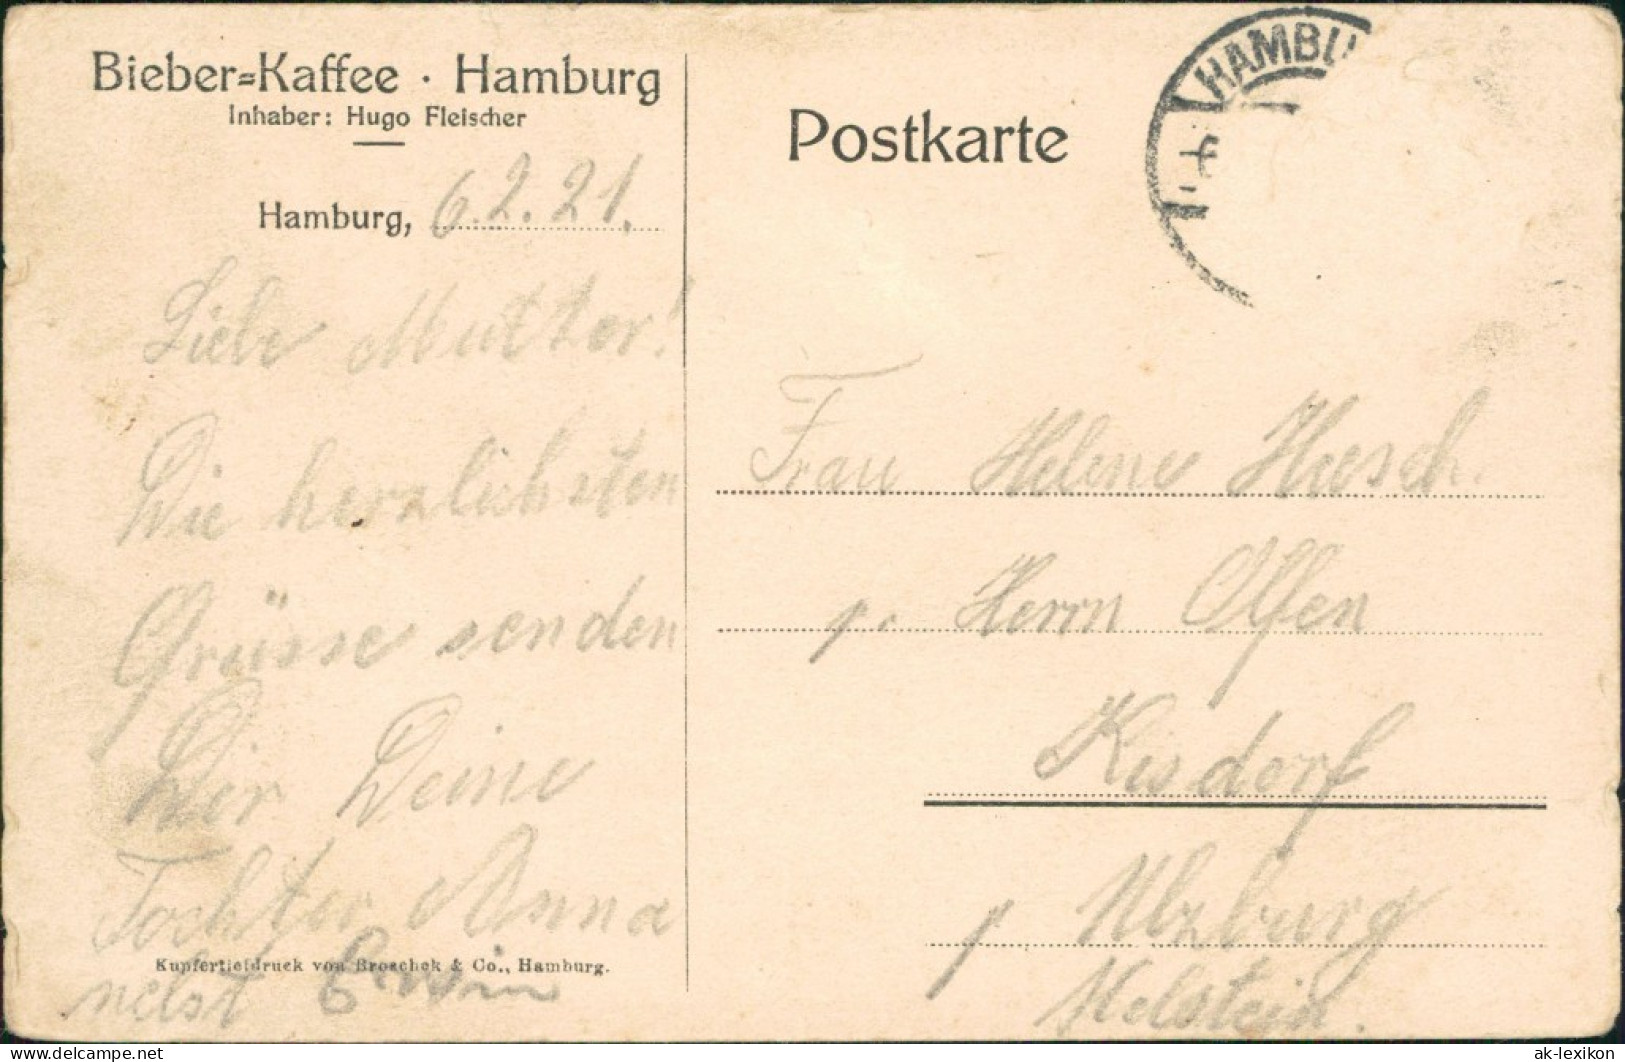 Bieber=Kaffee · Hamburg
Inhaber: Hugo Fleischer
Hamburg, 6.2.21.
Liebe Mutter!
Die herzlichsten
Grüsse senden
Dir Deine
Tochter Anna
Kupfertiefdruck von Broschek & Co., Hamburg.
nebst Erwin
Postkarte
HAMBU
Frau Helene
p. Herrn Offen
Kisdorf
p Ulzburg
Holstein.
delcampe.net
ak-lexikon